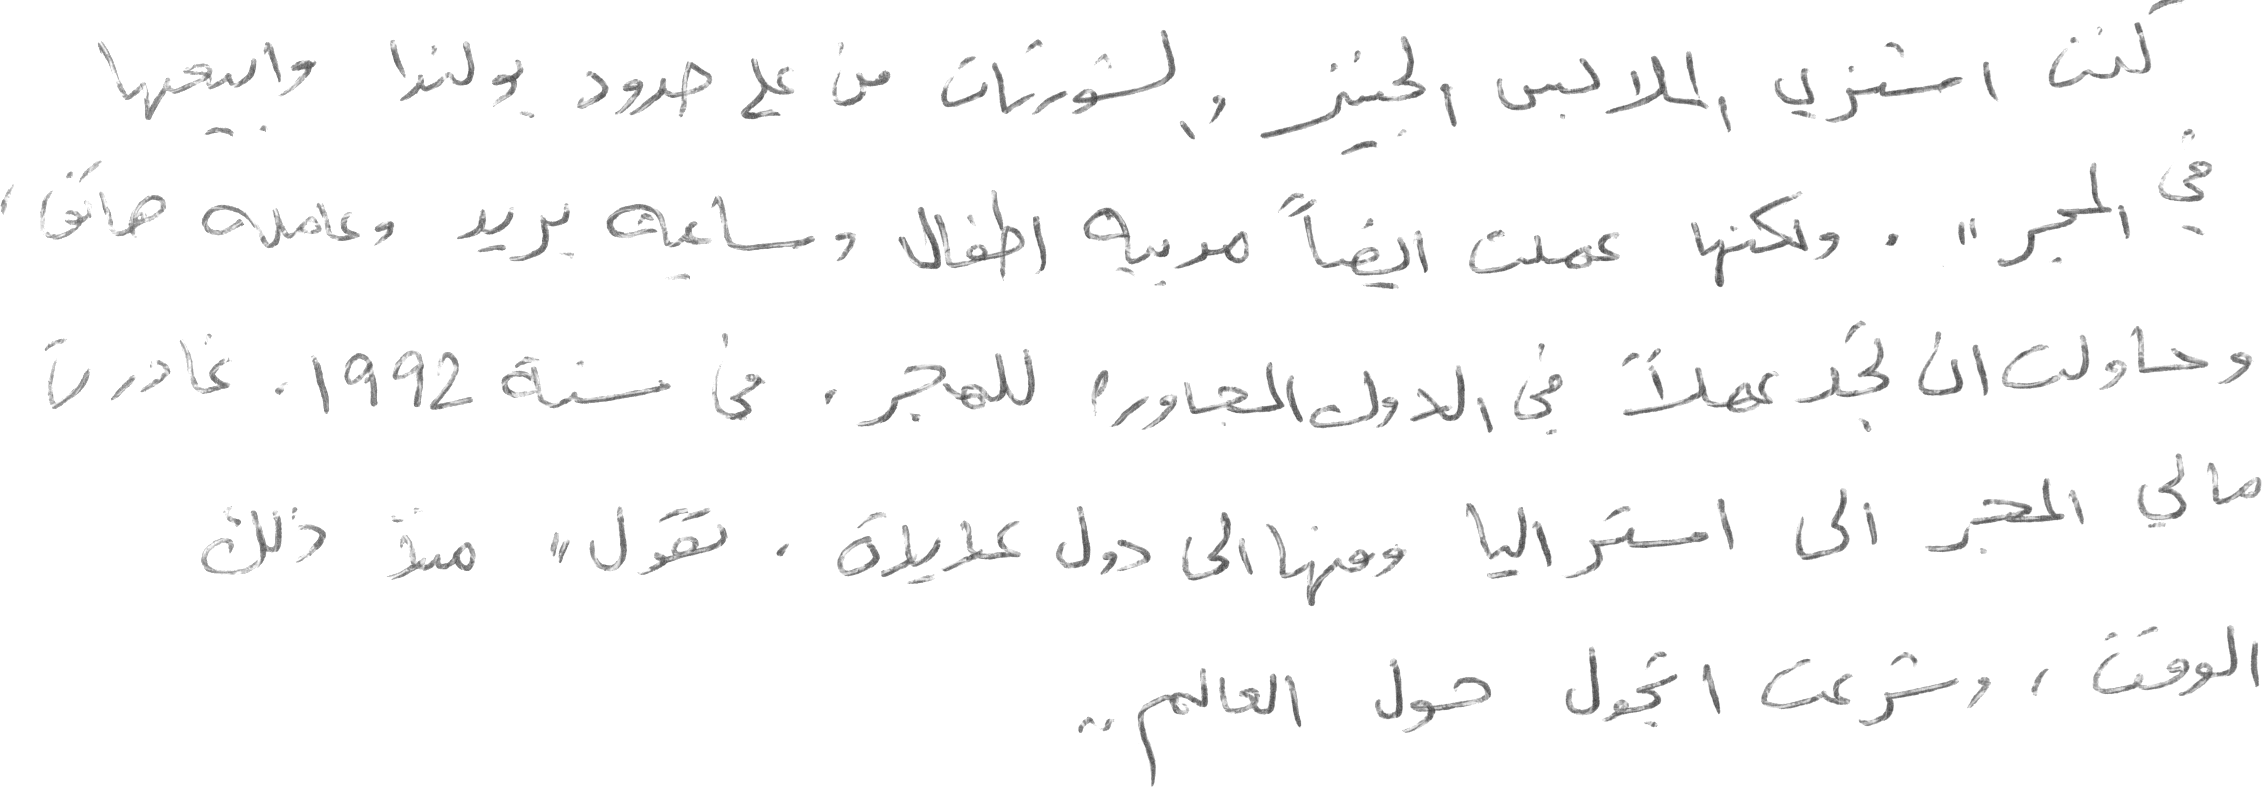 كنت اشتري الملابس الجينز والشورتات من على حدود بولندا وابيعها
في المجر". ولكنها عملت ايضاً مربيه اطفال وساعية بريد وعامله
وحاولت ان تجد عملاً في الدول المجاوره للمجر. في سنة 1992. غادرت
مالي المجر الى استراليا ومنها الى دول عديدة. تقول" منذ ذلك
الوقت، وشرعت اتجول حول العالم..